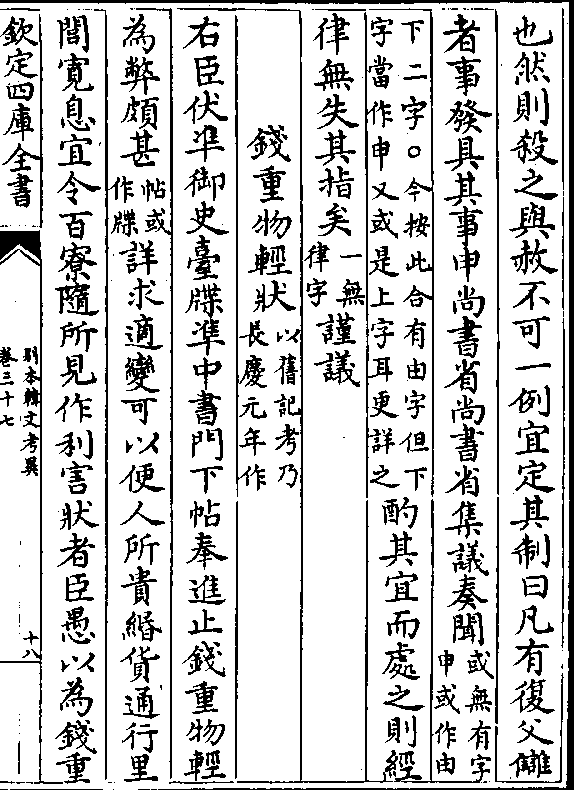 也然則殺之與赦不可一例宜定其制曰凡有復父讎
者事發具其事申尚書省尚書省集議奏聞或無有字
申或作由
下二字○今按此合有由字但下
字當作申又或是上字耳更詳之酌其宜而處之則經
律無失其指矣一無
律字謹議
錢重物輕狀以舊記考乃
長慶元年作
右臣伏準御史臺牒準中書門下帖奉進止錢重物輕
為弊頗甚帖或
作牒詳求適變可以便人所貴緡貨通行里
閭寛息宜令百寮隨所見作利害狀者臣愚以為錢重
欽定四庫全書
別本韓文考異
卷三十七
十八